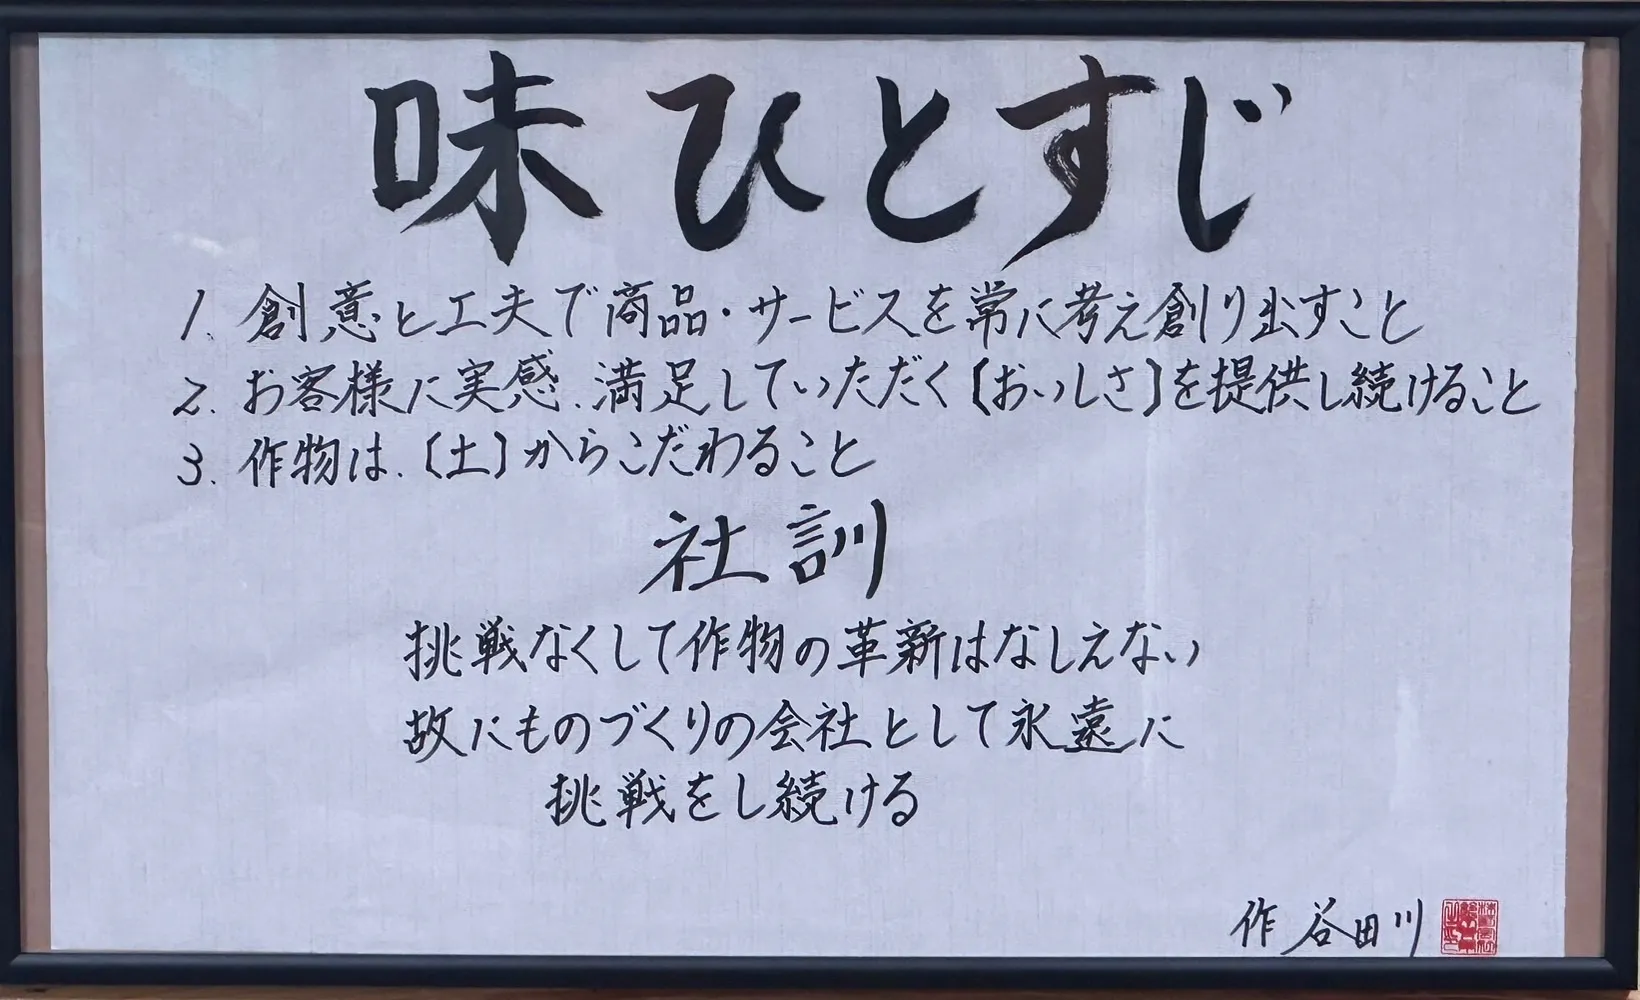 味ひとすじ
1. 創意と工夫で商品・サービスを常に考え創り出すこと
2. お客様に実感、満足していただく【おいしさ】を提供し続けること
3. 作物は、〔土〕からこだわること
社訓
挑戦なくして作物の革新はなしえない
故にものづくりの会社として永遠に
挑戦をし続ける
作 谷田川